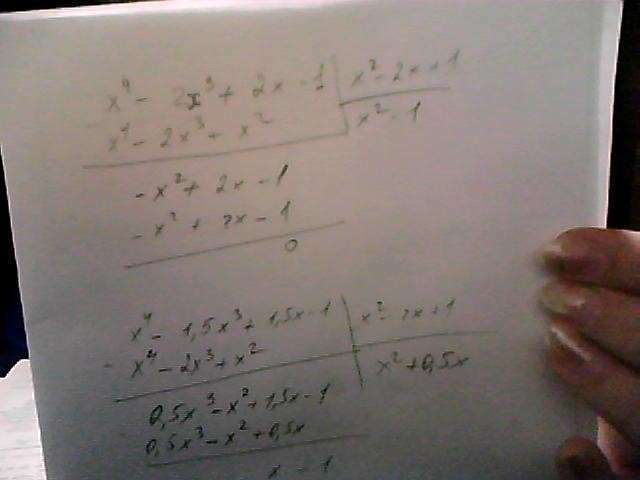 x⁴ - 2x³ + 2x - 1 | x² - 2x + 1
x⁴ - 2x³ + x² | x² - 1
- x² + 2x - 1
- x² + 2x - 1
0
x⁴ - 1,5x³ + 1,5x - 1 | x² - 2x + 1
- x⁴ - 2x³ + x² | x² + 0,5x
0,5x³ - x² + 1,5x - 1
0,5x³ - x² + 0,5x
x - 1